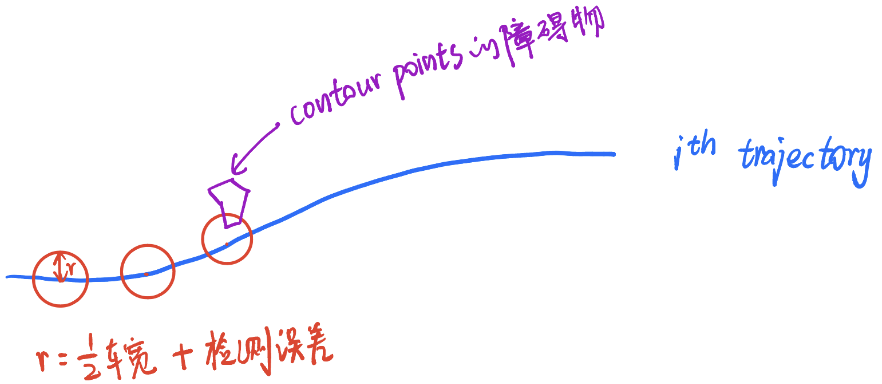 contour points in 障碍物
jth trajectory
r
r = 1/2 车宽 + 检测误差